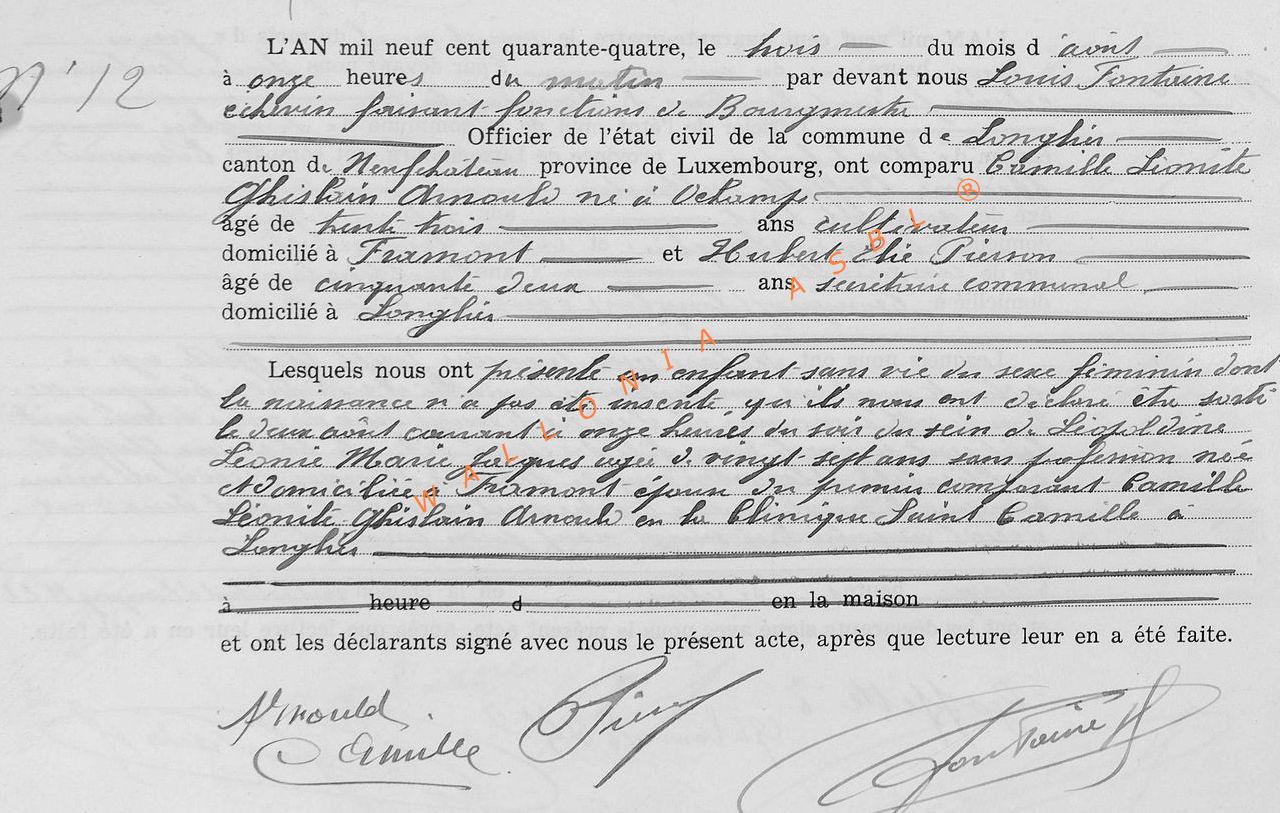 L'AN mil neuf cent quarante-quatre, le trois du mois d'août
N° 12
à onze heures du matin par devant nous Louis Fontaine
échevin faisant fonctions de Bourgmestre
Officier de l'état civil de la commune de Longlier
canton de Neufchâteau province de Luxembourg, ont comparu Camille Léonite
Ghislain Arnould né à Ochamps
âgé de trente trois ans cultivateur
domicilié à Framont et Hubert Elie Pierson
âgé de cinquante deux ans secrétaire communal
domicilié à Longlier
Lesquels nous ont présenté un enfant sans vie du sexe féminin dont
la naissance n'a pas été inscrite, qu'ils nous ont déclaré être sorti
le deux août courant à onze heures du soir du sein de Léopoldine
Léonie Marie Jacques agée de vingt sept ans sans profession née
et domiciliée à Framont épouse du premier comparant Camille
Léonite Ghislain Arnould en la Clinique Saint Camille à
Longlier
à heure d en la maison
et ont les déclarants signé avec nous le présent acte, après que lecture leur en a été faite.
Arnould Pierson Fontaine
Camille
WALLONIA ASBL ®